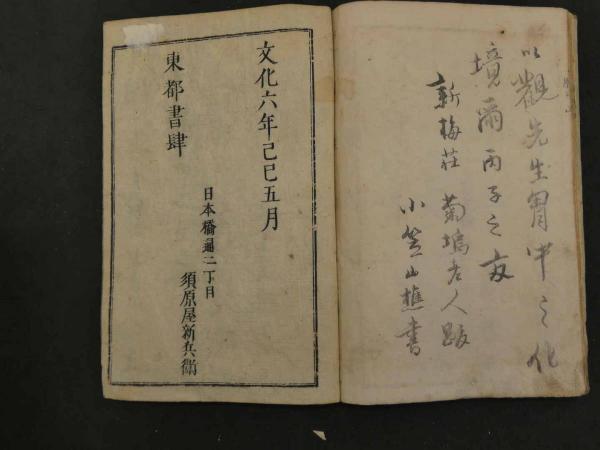 以觀先生胷中之化
境爾丙子之夜
新梅莊 菊塢老人跋
小笠山樵書
文化六年己巳五月
東都書肆
日本橋通二丁目
須原屋新兵衛